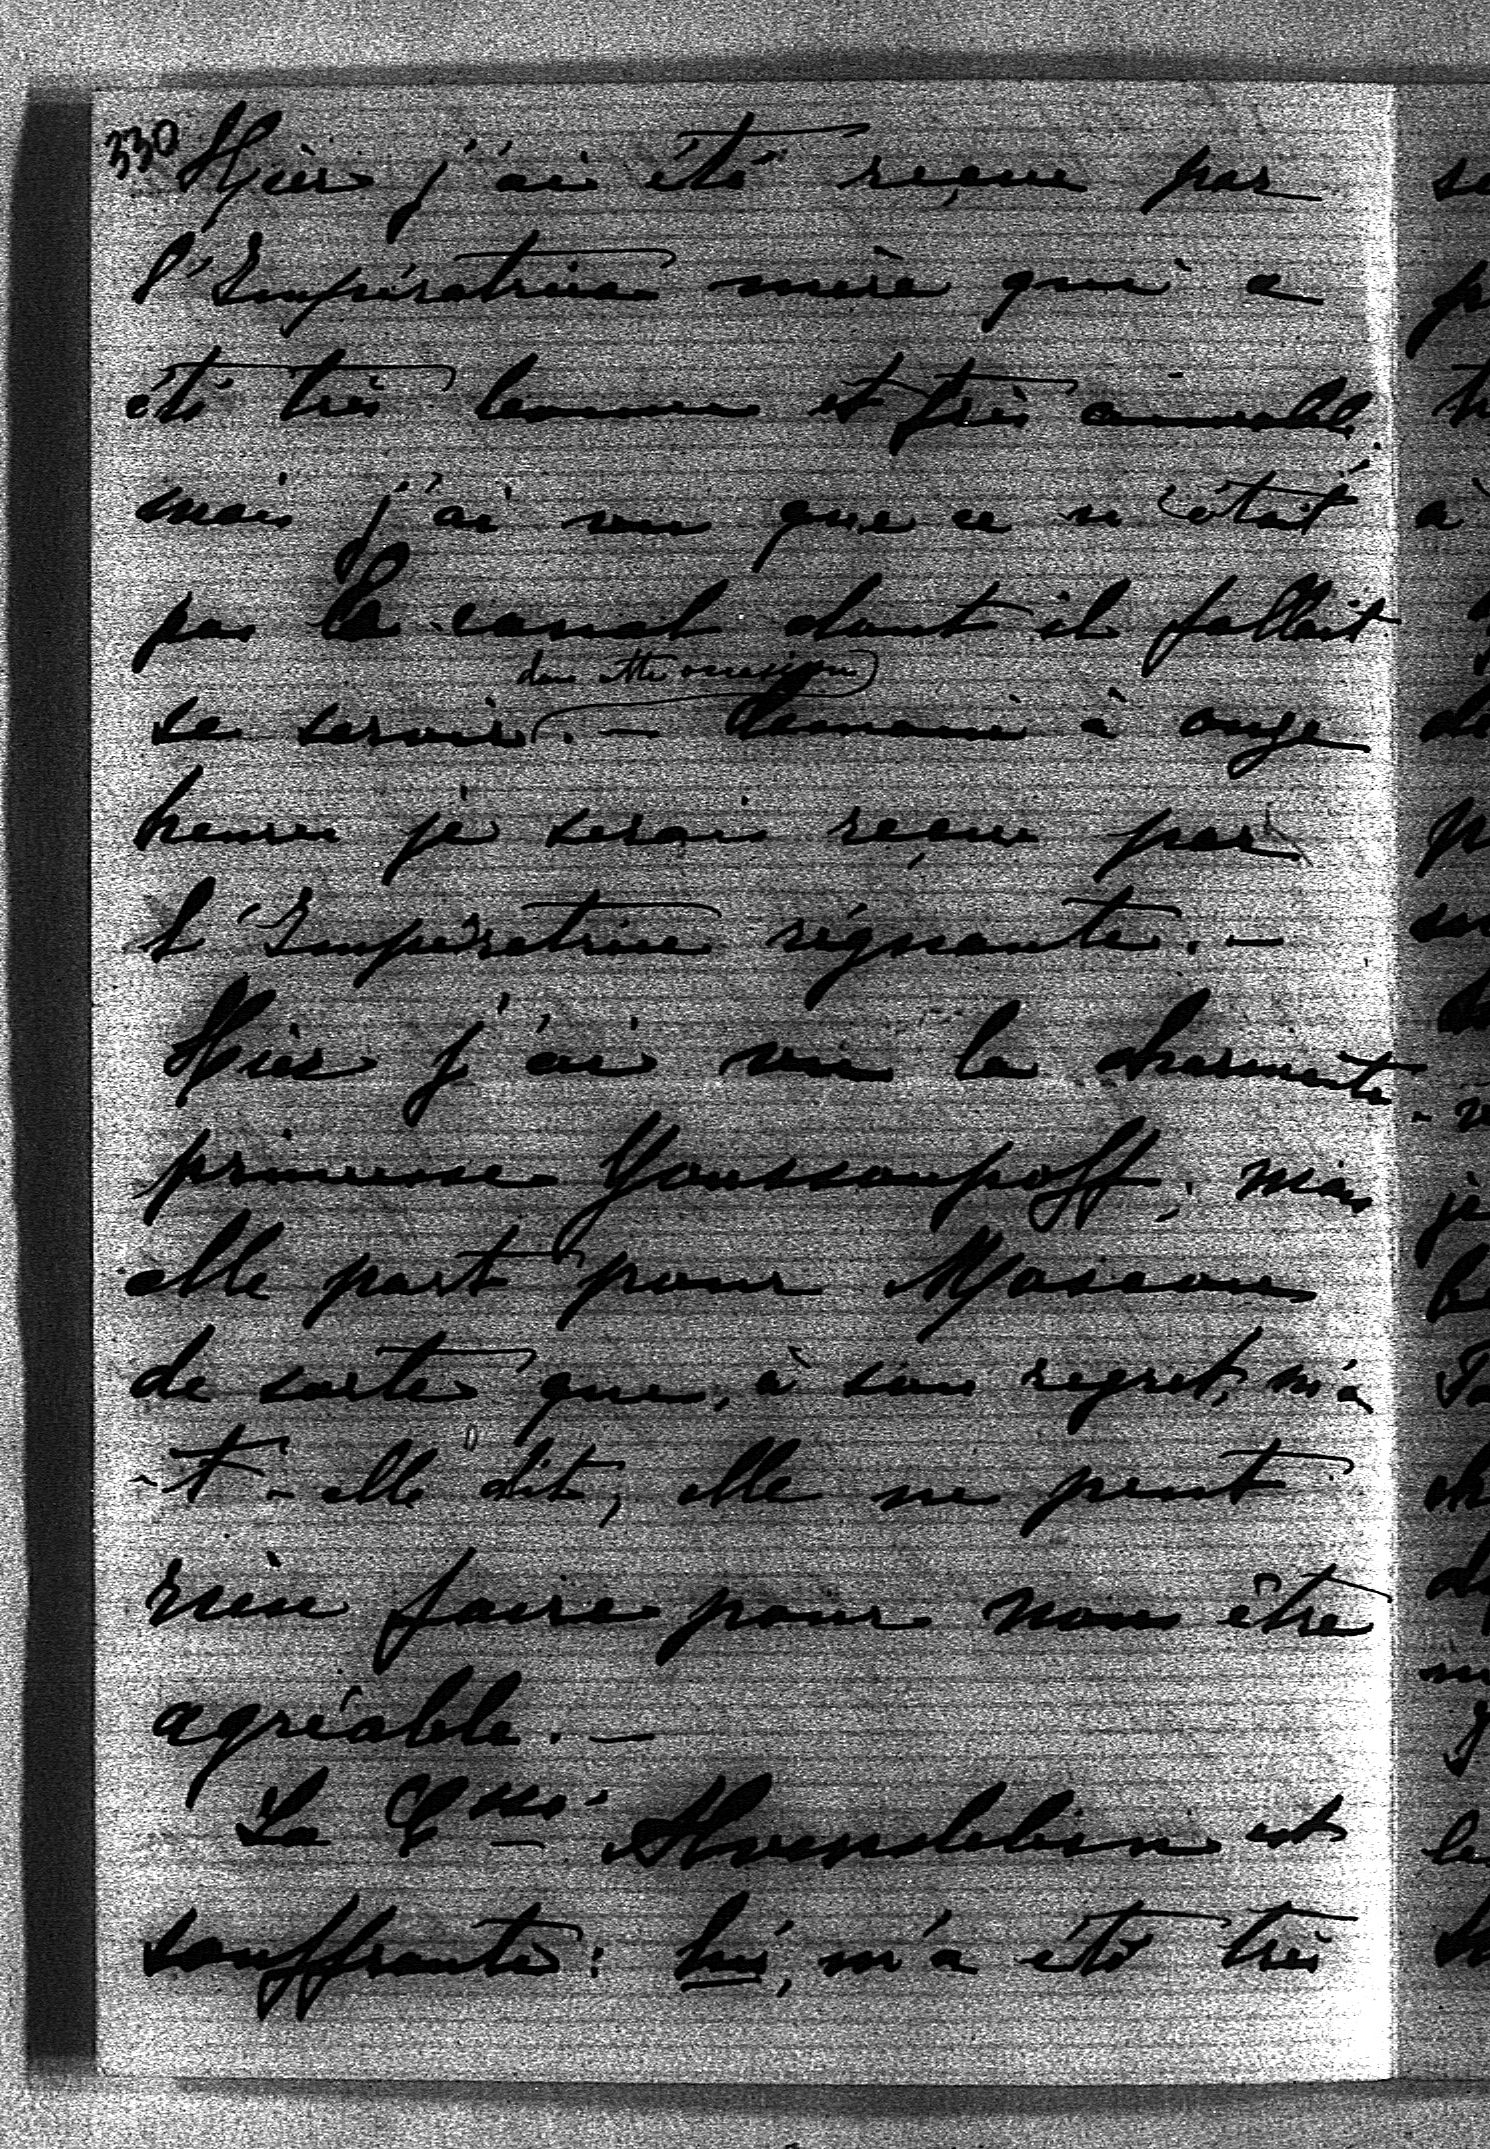 330
Hier j'ai été reçue par
l'Impératrice mère qui a
été très bonne et très aimable
mais j'ai vu que ce n'était
pas le canal dont il fallait
dans cette occasion
se servir. — Demain à onze
heures je serai reçue par
l'Impératrice régnante. —
Hier j'ai vu la charmante
princesse Youssoupoff, mais
elle part pour Moscou
de sorte que, à son regret, m'a
-t-elle dit, elle ne peut
rien faire pour nous être
agréable. —
La Csse
est
souffrante: lui, m'a été très